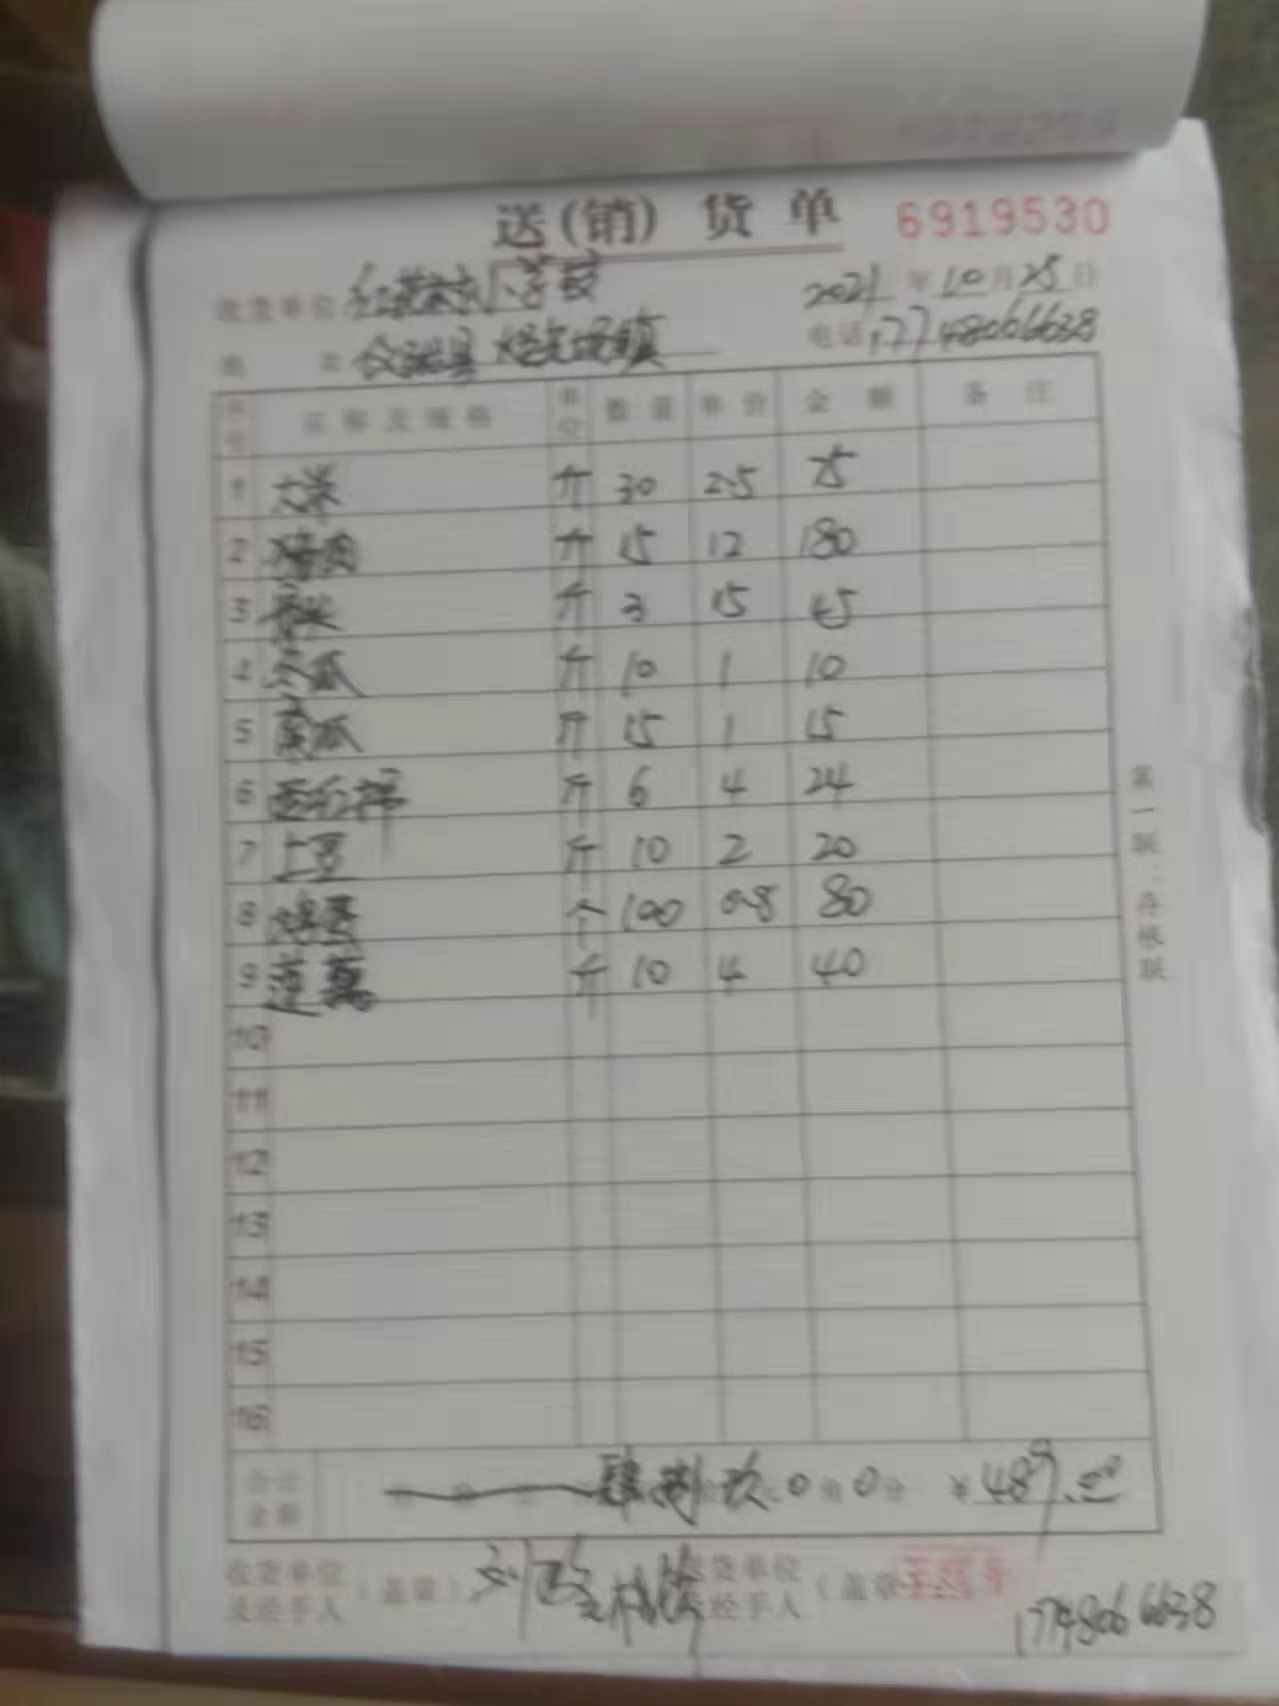 送(销)货单 6919530
收货单位 2021年10月25日
地 址 电话17748066638
序号 品名及规格 单位 数量 单价 金额 备注
1 大米 斤 30 2.5 75
2 猪肉 斤 15 12 180
3 斤 3 15 45
4 冬瓜 斤 10 1 10
5 南瓜 斤 15 1 15
6 西红柿 斤 6 4 24
7 土豆 斤 10 2 20
8 个 100 0.8 80
9 斤 10 4 40
10
11
12
13
14
15
16
合计金额 肆 捌 玖 0角0分 ¥489.00
收货单位及经手人(盖章) 送货单位经手人(盖章)
17748066638
第一联:存根联